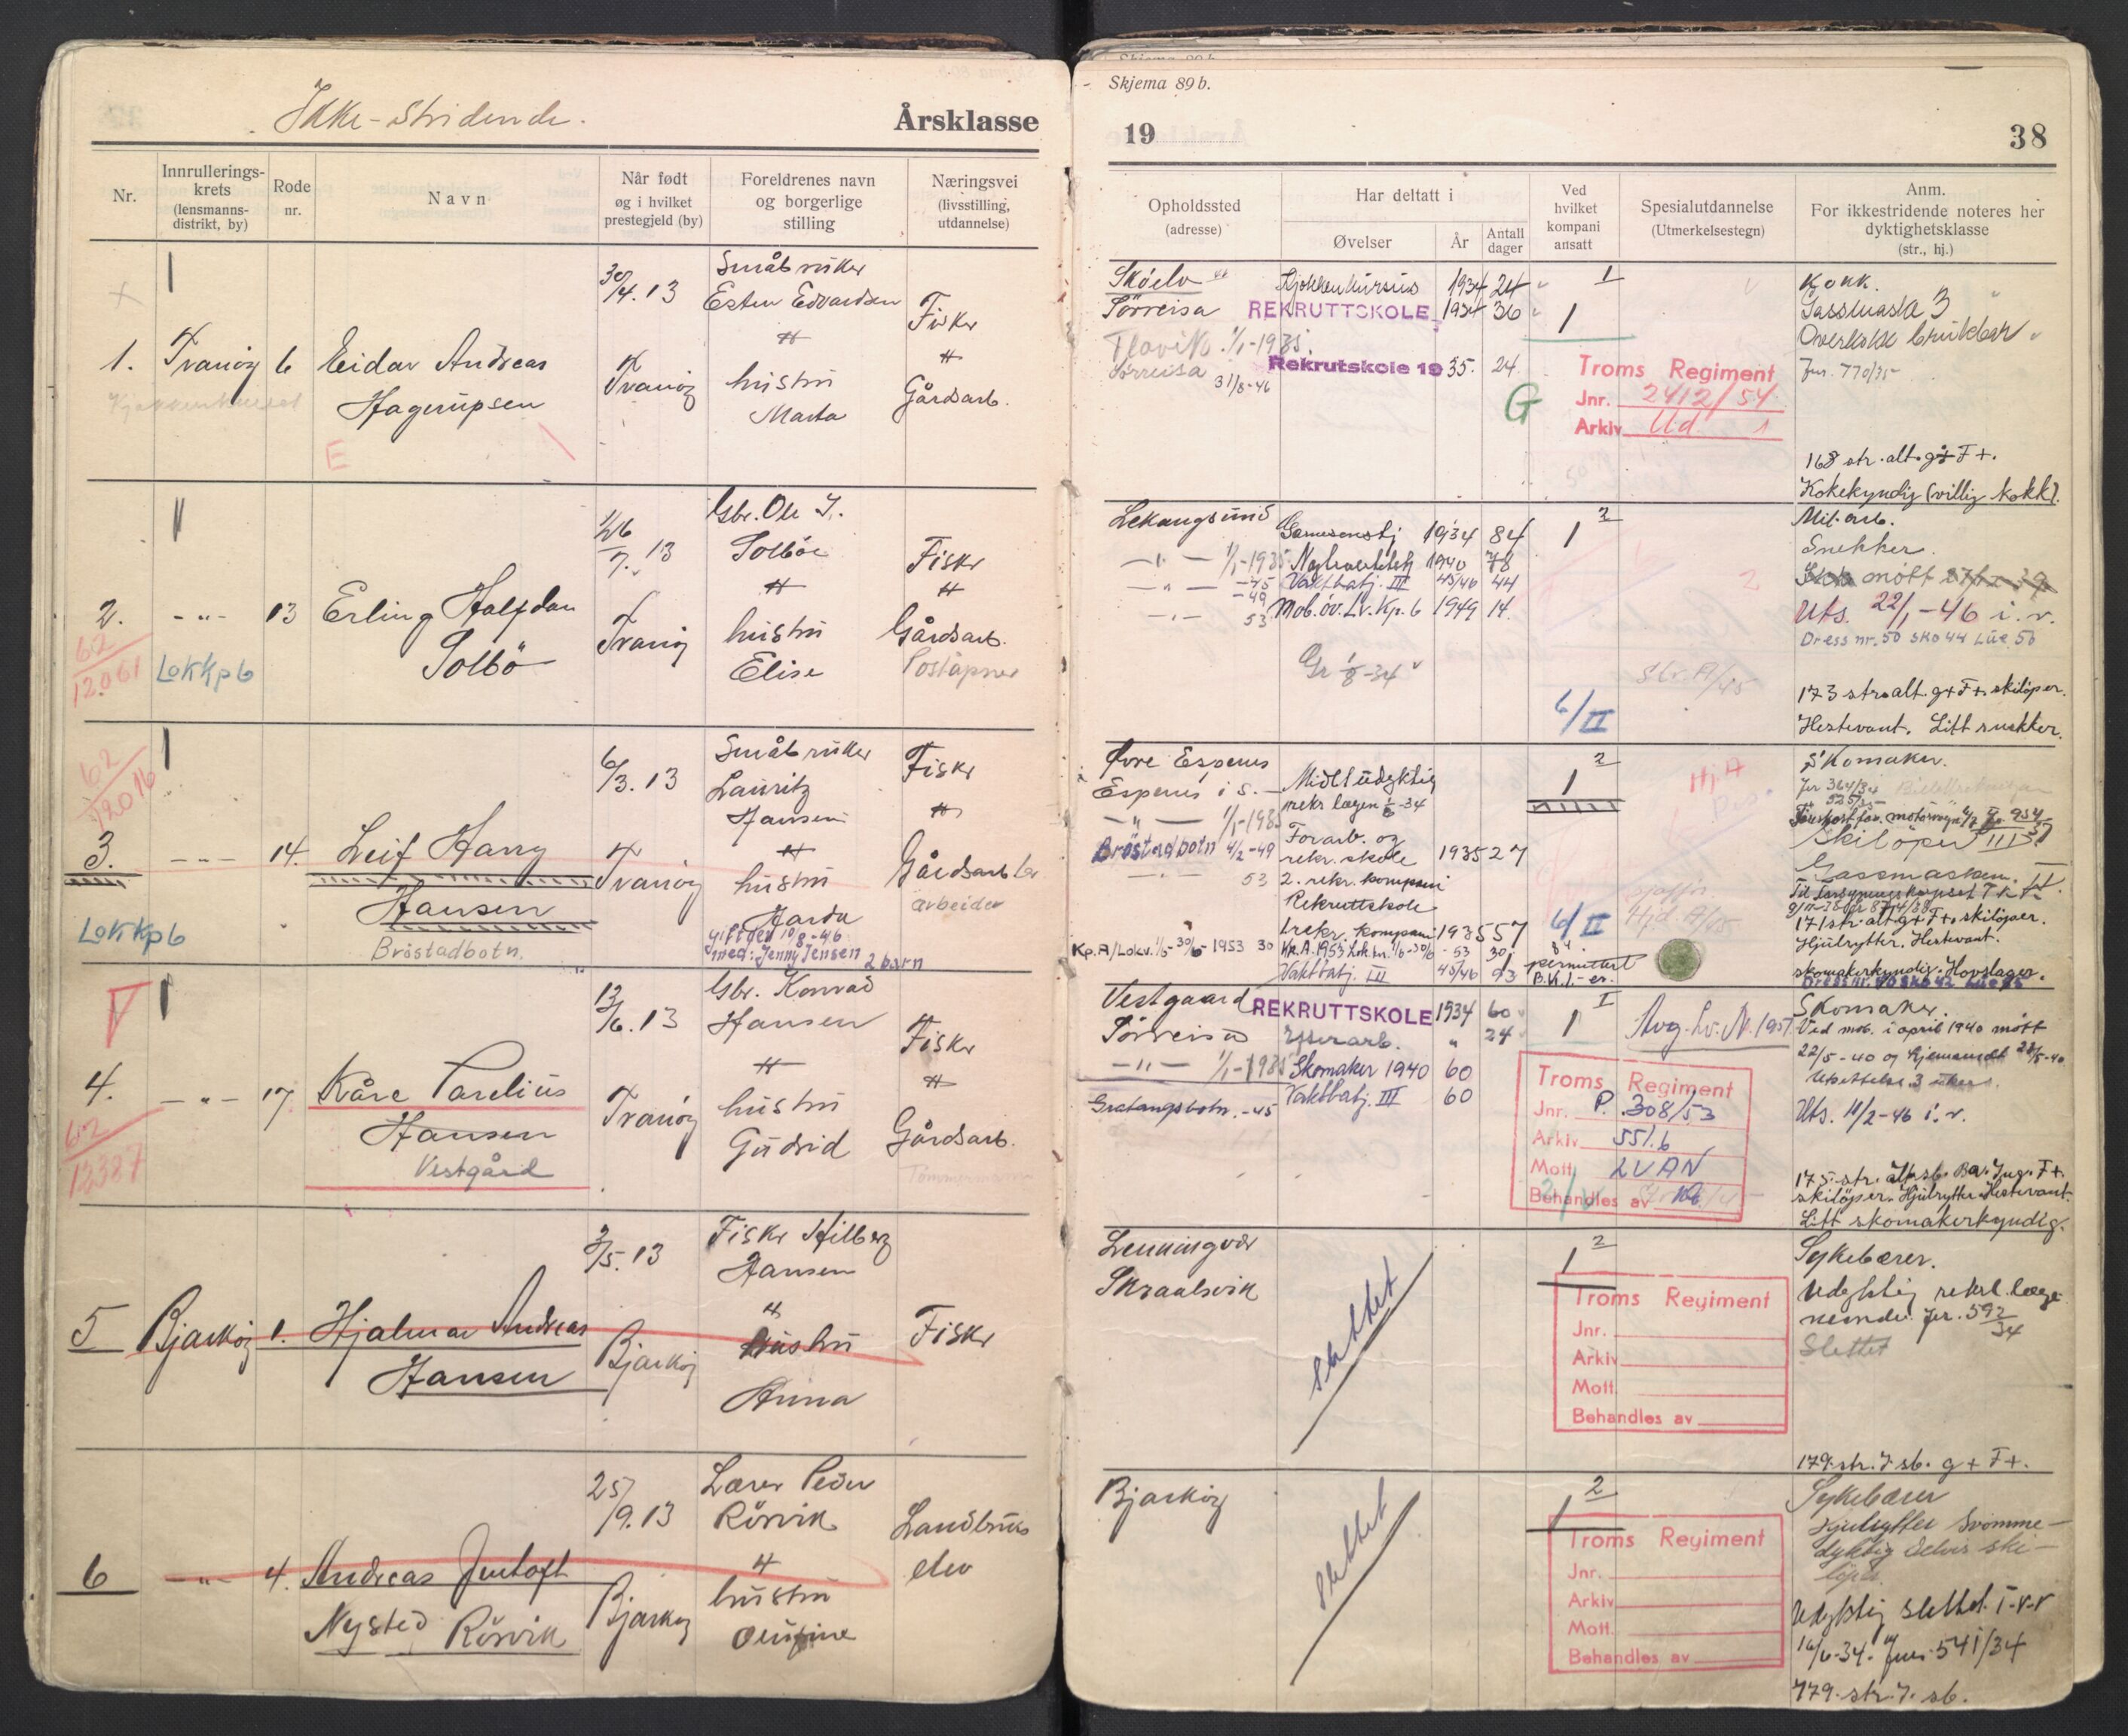 Ikke-stridende.
Årsklasse
Nr.
Innrullerings-
krets
(lensmanns-
distrikt, by)
Rode
nr.
Navn
Når født
og i hvilket
prestegjeld (by)
Foreldrenes navn
og borgerlige
stilling
Næringsvei
(livsstilling,
utdannelse)
1.
Tranöy
6
Eidar Andreas
Hagerupsen
E
30/4.13
Tranöy
Småbruker
Esten Edvardsen
hustru
Marta
Fisker
Gårdsarb.
2.
-"-
13
Erling Halfdan
Solbö
62
12.061
LokKp6
26/7.13
Tranöy
Gbr. Ole J.
Solböe
hustru
Elise
Fisker
Gårdsarb.
Poståpner
62
12016
3.
-"-
14.
Leif Harry
Hansen
Bröstadbotn.
LokKp6
6/3.13
Tranöy
Småbruker
Lauritz
Hansen
hustru
Harda
giftet 10/8-46
med: Jenny Jensen 2 barn
Fisker
Gårdsarb
arbeider
4.
-"-
17
Kåre Parelius
Hansen
Vestgård
62
12387
12/6.13
Tranöy
Gbr. Konrad
Hansen
hustru
Gudrid
Fisker
Gårdsarb.
Tömmermann
5
Bjarköy
1.
Hjalmar Andreas
Hansen
3/5.13
Bjarköy
Fisker Hilberg
Hansen
hustru
Anna
Fisker
6
-"-
4.
Andreas Jentoft
Nysted Rörvik
25/9.13
Bjarköy
Lærer Peder
Rörvik
hustru
Fisker
Landbruks
elev
Skjema 89b.
19
38
Opholdssted
(adresse)
Har deltatt i
Øvelser
År
Antall
dager
Ved
hvilket
kompani
ansatt
Spesialutdannelse
(Utmerkelsestegn)
Anm.
For ikkestridende noteres her
dyktighetsklasse
(str., hj.)
Sköelv
Sörreisa
1/1-1935.
Sörreisa
31/8-46
Kjökkenkursus 1934 24
REKRUTTSKOLE 1934 36
Rekrutskole 1935. 24.
G
1
1
Troms Regiment
Jnr. 2412/54
Arkiv Ud 1
Kokk.
Gassmaske 3
Jnr. 770/35
168 str. alt. g+F+.
Kokekyndig (villig kokk).
Lekangsund
-"- 1/1-1935
-"- -45
-49
-"- 53
Garnisonstj 1934 84
1940 78
Vaktbatj. III 45/46 44
Mob. öv. Lv. Kp. 6 1949 14.
Gr 1/8-34
1
2
2
6/II
Mil. arb.
Snekker.
Uts. 22/1-46 i. v.
Dress nr. 50 sko 44 Lue 50
173 str. alt. g+F+ skilöper.
Hestevant. Litt snekker.
Övre Espenes
Espenes i S.
-"- 1/1-1935
Bröstadbotn 4/2-49
-"- 53
Kp. A/Lokv. 1/5-30/6-1953 30
Midl udyktig
rekr lægen
-34
Forarb. og
rekr. skole 1935 27
2. rekr. kompani
Rekruttskole
1. rekr. kompani 1935 57
Vaktbatj. III 45/46 93
1
2
Hj. A
6/II
permittert
Skomaker.
Jnr 364/34
Skilöper
Gassmasken. II.
171 str. alt. g+F+. skilöper.
Hjulrytter. Hestevant.
skomakerkyndig. Hovslager.
Vestgaard
Sörreisa
-"- 1/1-1935
Gratangsbotn. -45
REKRUTTSKOLE 1934 60
Efterarb. " 24
Skomaker 1940 60
Vaktbatj. III 60
1
1
Avg. Lv. N. 1957
Troms Regiment
Jnr. P. 308/53
Arkiv 551.6
Mott. LVAN
Behandles av
Skomaker.
Ved mob. i april 1940 mött
22/5-40 og hjemsendt
Uts. 11/2-46 i. v.
skilöper. Hjulrytter. Hestevant.
Litt skomakerkyndig.
Lemmingvær
Skraalsvik
slettet
1
2
Troms Regiment
Jnr.
Arkiv
Mott.
Behandles av
Sykebærer.
Udyktig rekrl. læge-
nemnda Jnr. 592/34
Slettet
179. str. 7 sb. g+F+.
Bjarköy
slettet
1
2
Troms Regiment
Jnr.
Arkiv
Mott.
Behandles av
Sykebærer
Hjulrytter Svömme-
dyktig Delvis ski-
löper
Udyktig slettet
16/6-34. Jnr. 541/34
179. str. 7. sb.